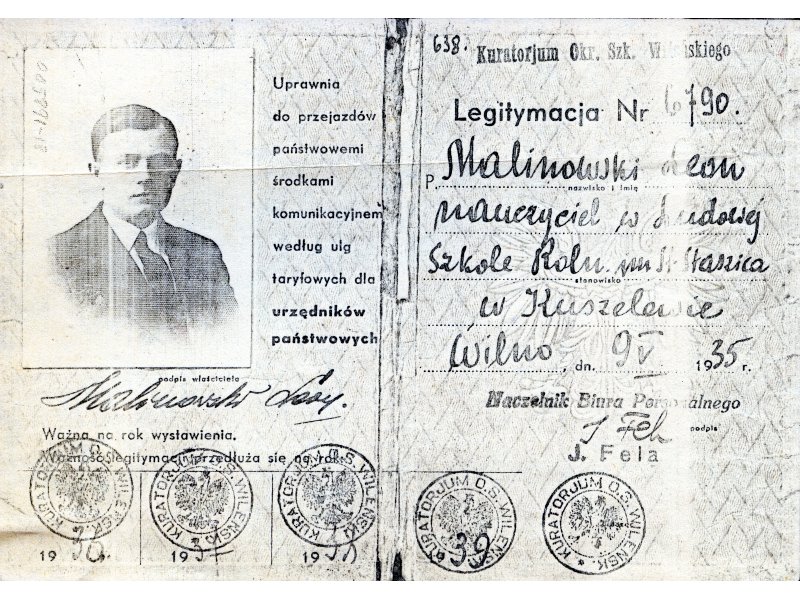 Uprawnia
do przejazdów
państwowemi
środkami
komunikacyjnemi
według ulg
taryfowych dla
urzędników
państwowych
podpis właściciela
Malinowski Leon.
Ważna na rok wystawienia.
Ważność legitymacji przedłuża się na rok:
KURATORJUM O.S. WILEŃSK.
KURATORJUM O.S. WILEŃSK.
KURATORJUM O.S. WILEŃSK.
1936 1937 1938
638. Kuratorjum Okr. Szk. Wileńskiego
Legitymacja Nr 6790.
P. Malinowski Leon
nazwisko i imię
nauczyciel w Ludowej
Szkole Roln. im St. Staszica
stanowisko
w Kuszelewie
Wilno, dn. 9 V 1935 r.
Naczelnik Biura Personalnego
J Fela
podpis
J. Fela
KURATORJUM O.S. WILEŃSK.
39
KURATORJUM O.S. WILEŃSK.